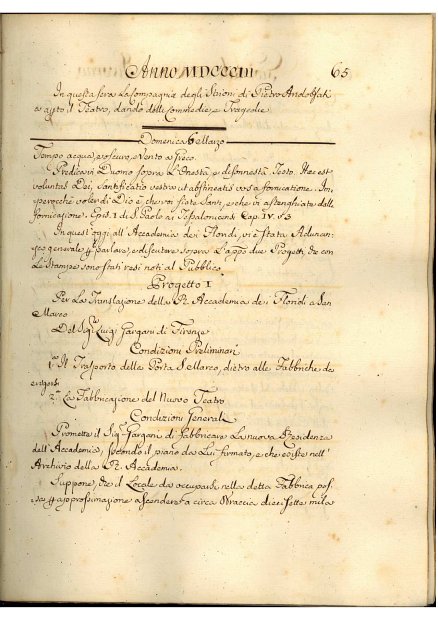 Anno MDCCCIII 65
In questa sera La Compagnia degli Strioni di Pietro Andolfati
à apto il Teatro, dando delle Commedie, e Tragedie
Domenica 6 Marzo
Tempo acqua, e oscuro, e Vento a Greco.
Predica in Duomo sopra L'Onestà, e disonestà Testo. Haec est
voluntas Dei, Santificatio vestra ut abstineatis vos a fornicatione. Im-
perocchè voler di Dio è, che voi siate Santi, e che vi astenghiate dalla
fornicazione. Epis. 1 di S. Paolo ai Tessalonicensi Cap. IV. § 3
In quest'oggi all'Accademia dei Floridi, vi è Stata Adunan-
generale parlare, e discutere sopra L'appo due Progetti, che con
Le Stampe sono stati resi noti al Pubblico.
Progetto I
Per La Translazione della R. Accademia dei Floridi a San
Marco
Del Sigr Luigi Gargani di Firenze
Condizioni Preliminari
1mo Il Trasporto della Porta S. Marco, dietro alle Fabbriche da
erigersi
2do La Fabbricazione del Nuovo Teatro
Condizioni Generali
Promette il Sigr Gargani di fabbricare La nuova Residenza
dell'Accademia, secondo il piano da Lui firmato, e che esiste nell'
Archivio della R. Accademia.
Suppone, che il Locale da occuparsi nella detta Fabbrica pos-
sa approssimazione ascendere a circa Braccia diecisette mila